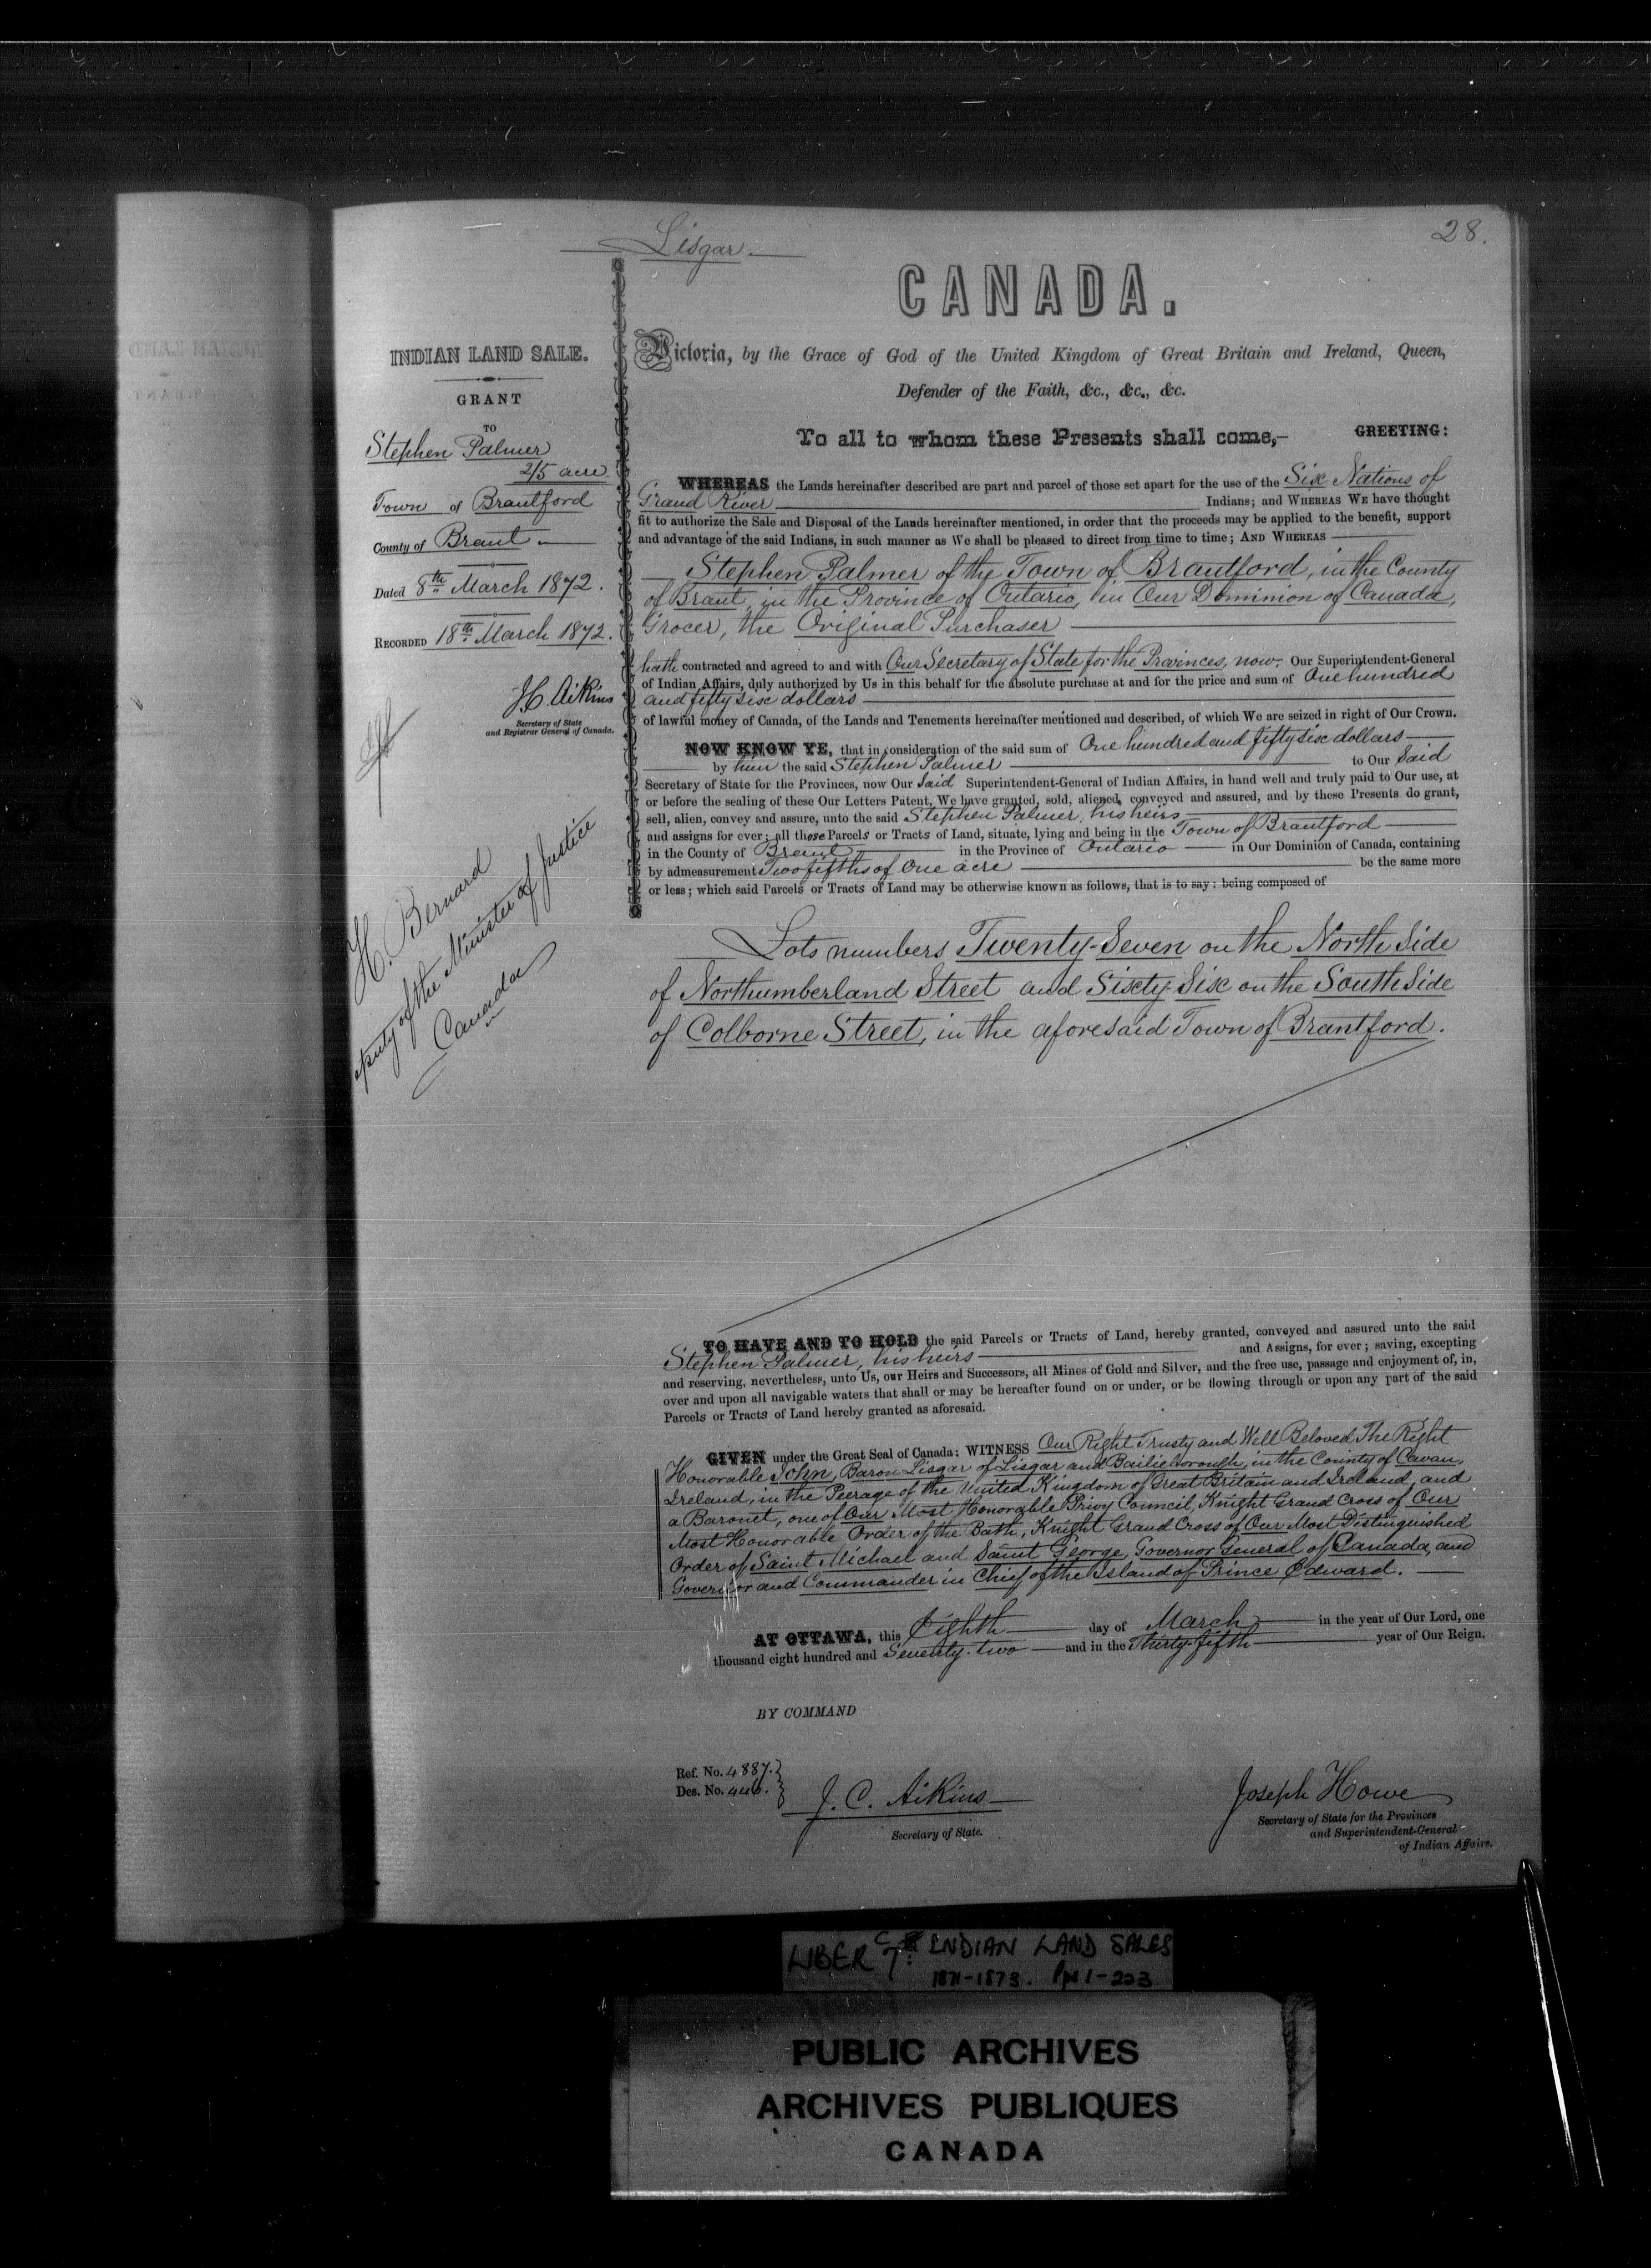 28.
Lisgar.
CANADA.
INDIAN LAND SALE.
GRANT
TO
Stephen Palmer
2/5 acre
Town of Brantford
County of Brant
Dated 8th March 1872.
RECORDED 18th March 1872.
J.C. Aikins
Secretary of State
and Registrar General of Canada.
H. Bernard
eputy of the Minister of Justice
Canada
Victoria, by the Grace of God of the United Kingdom of Great Britain and Ireland, Queen,
Defender of the Faith, &c., &c., &c.
To all to whom these Presents shall come,— GREETING:
WHEREAS the Lands hereinafter described are part and parcel of those set apart for the use of the Six Nations of
Grand River Indians; and WHEREAS WE have thought
fit to authorize the Sale and Disposal of the Lands hereinafter mentioned, in order that the proceeds may be applied to the benefit, support
and advantage of the said Indians, in such manner as We shall be pleased to direct from time to time; AND WHEREAS
Stephen Palmer of the Town of Brantford, in the County
of Brant, in the Province of Ontario, in Our Dominion of Canada,
Grocer, the Original Purchaser
hath contracted and agreed to and with Our Secretary of State for the Provinces, now Our Superintendent-General
of Indian Affairs, duly authorized by Us in this behalf for the absolute purchase at and for the price and sum of One hundred
and fifty six dollars
of lawful money of Canada, of the Lands and Tenements hereinafter mentioned and described, of which We are seized in right of Our Crown.
NOW KNOW YE, that in consideration of the said sum of One hundred and fifty six dollars
by him the said Stephen Palmer to Our Said
Secretary of State for the Provinces, now Our Said Superintendent-General of Indian Affairs, in hand well and truly paid to Our use, at
or before the sealing of these Our Letters Patent, We have granted, sold, aliened, conveyed and assured, and by these Presents do grant,
sell, alien, convey and assure, unto the said Stephen Palmer, his heirs
and assigns for ever; all those Parcels or Tracts of Land, situate, lying and being in the Town of Brantford
in the County of Brant in the Province of Ontario in Our Dominion of Canada, containing
by admeasurement Two fifths of One acre be the same more
or less; which said Parcels or Tracts of Land may be otherwise known as follows, that is to say: being composed of
Lots numbers Twenty-Seven on the North Side
of Northumberland Street and Sixty-Six on the South Side
of Colborne Street, in the aforesaid Town of Brantford.
TO HAVE AND TO HOLD the said Parcels or Tracts of Land, hereby granted, conveyed and assured unto the said
Stephen Palmer, his heirs and Assigns, for ever; saving, excepting
and reserving, nevertheless, unto Us, our Heirs and Successors, all Mines of Gold and Silver, and the free use, passage and enjoyment of, in,
over and upon all navigable waters that shall or may be hereafter found on or under, or be flowing through or upon any part of the said
Parcels or Tracts of Land hereby granted as aforesaid.
GIVEN under the Great Seal of Canada: WITNESS Our Right Trusty and Well Beloved The Right
Honorable John, Baron Lisgar of Lisgar and Bailieborough, in the County of Cavan,
Ireland, in the Peerage of the United Kingdom of Great Britain and Ireland, and
a Baronet, one of Our Most Honorable Privy Council, Knight Grand Cross of Our
Most Honorable Order of the Bath, Knight Grand Cross of Our Most Distinguished
Order of Saint Michael and Saint George, Governor General of Canada, and
Governor and Commander in Chief of the Island of Prince Edward.
AT OTTAWA, this Eighth day of March in the year of Our Lord, one
thousand eight hundred and Seventy-two and in the Thirty-fifth year of Our Reign.
BY COMMAND
Ref. No. 4887.
Des. No. 446.
J. C. Aikins
Secretary of State.
Joseph Howe
Secretary of State for the Provinces
and Superintendent-General
of Indian Affairs.
LIBER C7: INDIAN LAND SALES
1871-1873. Pps 1-223
PUBLIC ARCHIVES
ARCHIVES PUBLIQUES
CANADA